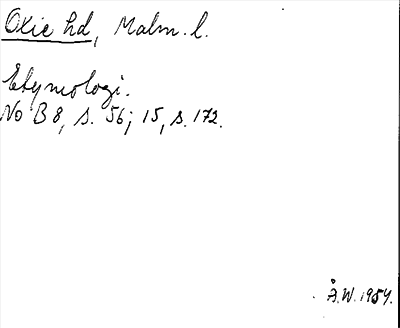 Oxie hd, Malm. l.
Etymologi.
No B 8, s. 56; 15, s. 172.
Å.W. 1954.